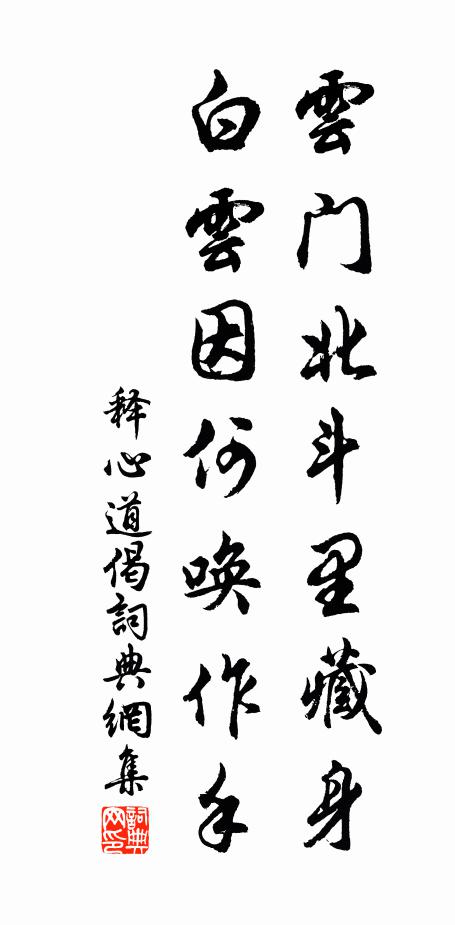 雲门北斗里藏身
白雲因何唤作手
释心道偈詞典網集
詞典网印